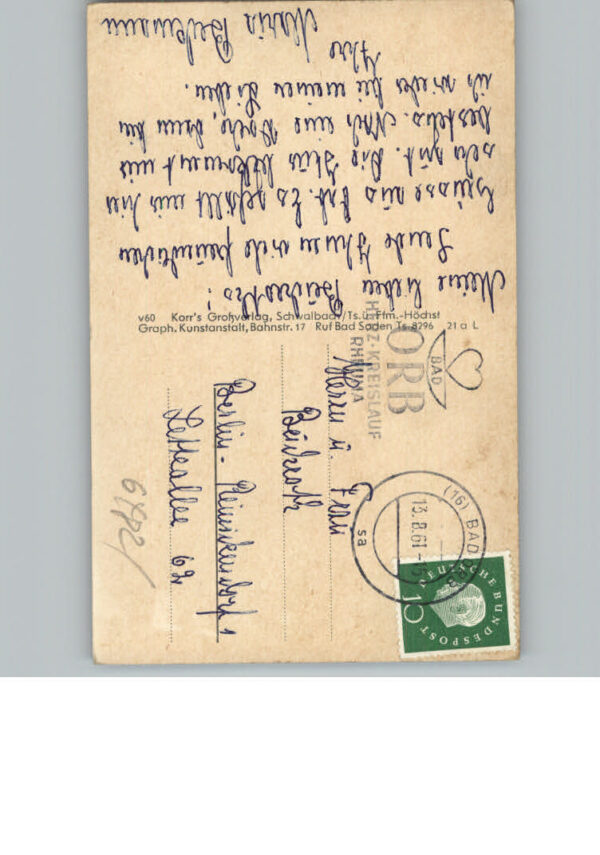 Meine lieben
Sende Ihnen viele freundlichen
Grüsse aus Orb. Es gefällt mir hier
sehr gut. Die Kur bekommt mir
bestens. Noch eine Woche, dann bin
ich wieder bei meinen Lieben.
Ihre
Maria
v60 Karr's Großverlag, Schwalbach/Ts.u.Ffm.-Höchst
Graph. Kunstanstalt, Bahnstr. 17 Ruf Bad Soden Ts. 8296 21 a L
BAD
ORB
HERZ·KREISLAUF
RHEUMA
(16) BAD
13.8.61
sa
DEUTSCHE BUNDESPOST
10
Herrn u. Frau
Berlin-Reinickendorf 1
Letteallee 62